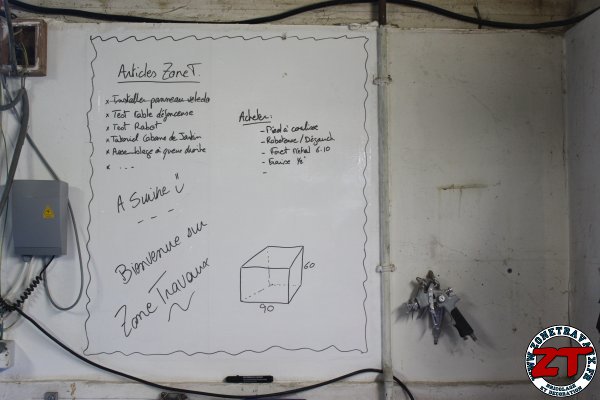 Articles ZoneT.
x Installer panneau velleda
x Test Table défonceuse
x Test Rabot
x Tutoriel Cabane de Jardin
x Assemblage à queue droite
x ...
A Suivre
Bienvenue sur
Zone Travaux
Acheter:
- Pied à coulisse
- Raboteuse / Dégauch
- Foret métal 6.10
- Fraise 1/2"
-
60
90
WWW.ZONETRAVAUX.FR
ZT
BRICOLAGE
ET DECORATION